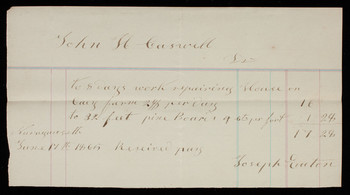 John H Caswell
Dr
To 8 days work repairing House on
farm 2/ per day 16
to 32 feet pine Boards @ 4c per foot 1 28
17 28
June 17th Received pay
Joseph Eaton